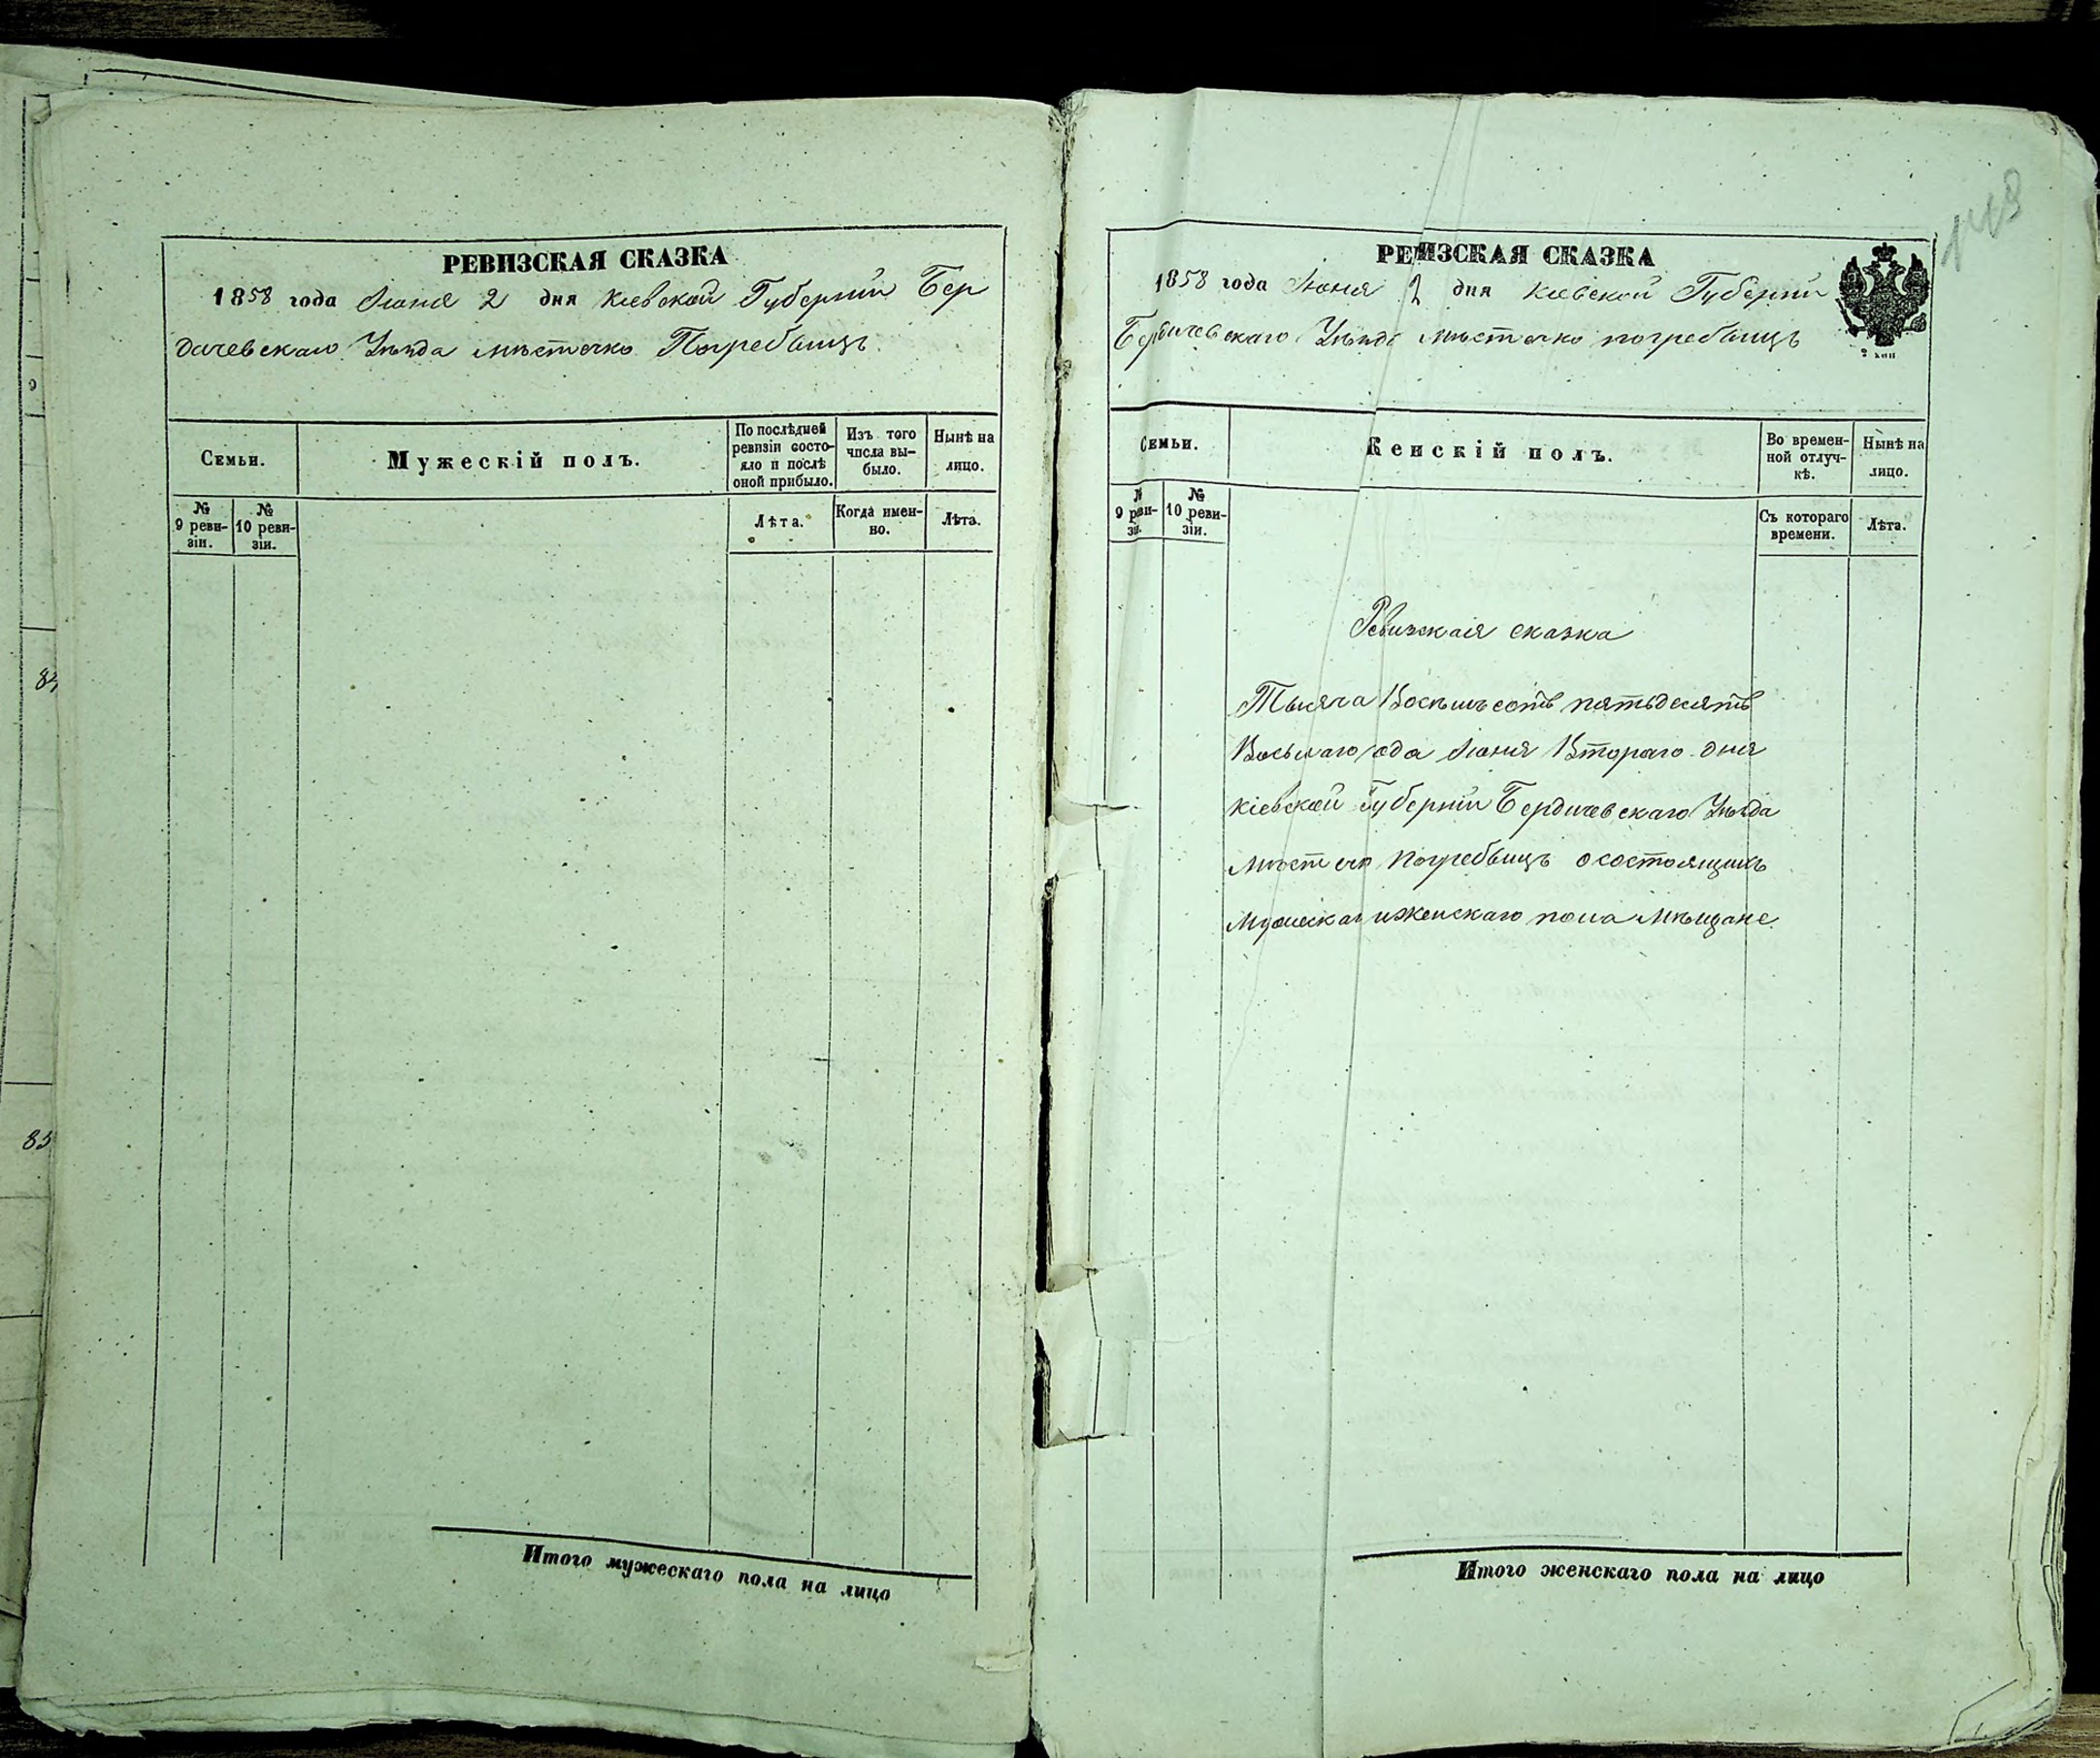 РЕВИЗСКАЯ СКАЗКА
1858 года Июня 2 дня Кіевской Губерніи Бер
дичевскаго Уѣзда мѣстечко Погребищъ
Семьи.
Мужескій полъ.
По послѣдней ревизіи состояло и послѣ оной прибыло.
Изъ того числа выбыло.
Нынѣ на лицо.
№ 9 ревизіи.
№ 10 ревизіи.
Лѣта.
Когда именно.
Лѣта.
Итого мужескаго пола на лицо
84
85
РЕИЗСКАЯ СКАЗКА
1858 года Июня 2 дня Кіевской Губерніи
Бердичевскаго Уѣзда мѣстечко погребищъ
2 коп
Семьи.
Женскій полъ.
Во временной отлучкѣ.
Нынѣ на лицо.
№ 9 ревизіи.
№ 10 ревизіи.
Съ котораго времени.
Лѣта.
Ревизская сказка
Тысяча Восемьсотъ пятьдесятъ
Восьмаго года Июня Втораго дня
Кіевской Губерніи Бердичевскаго Уѣзда
мѣстечко Погребищъ о состоящихъ
мужеска и женскаго пола мѣщане.
Итого женскаго пола на лицо